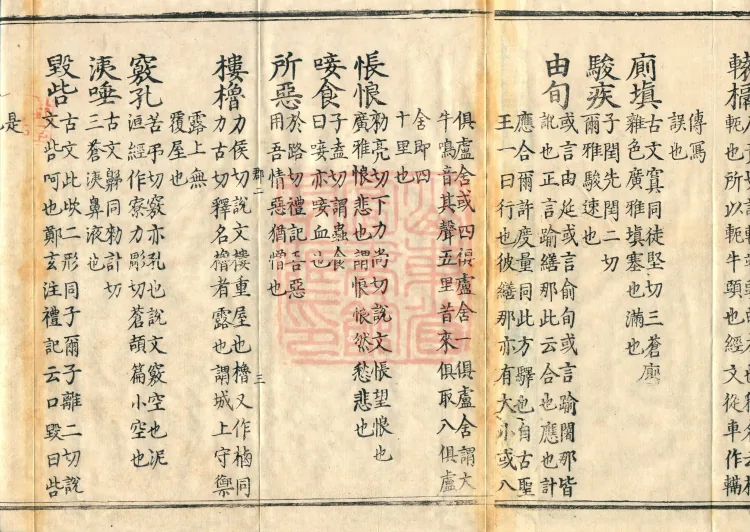 傳寫
誤也
廁填 古文寘同徒堅切三蒼廁
雜色廣雅填塞也滿也
駿疾 子閏先閏二切
爾雅駿速也
由旬 或言由延或言俞旬或言踰闍那皆
訛也正言踰繕那此云合也應也計
應合爾許度量同此方驛也自古聖
王一日行也彼繕那亦有大小或八
俱盧舍或四俱盧舍一俱盧舍謂大
牛鳴音其聲五里昔來俱取八俱盧
舍即四
十里也
悵悢 勑亮切下力尚切說文悵望恨也
廣雅悢悲也謂悢悢然愁悲也
唼食 子盍切謂蟲食
曰唼亦唼血也
所惡 於路切禮記吾惡
用吾情惡猶憎也
郡二
三
樓櫓 力侯切說文樓重屋也櫓又作樐同
力古切釋名櫓者露也謂城上守禦
露上無
覆屋也
竅孔 苦弔切竅亦孔也說文竅空也泥
洹經作寮力彫切蒼頡篇小空也
洟唾 古文鵜同勑計切
三蒼洟鼻液也
毀呰 古文些欪二形同子爾子離二切說
文呰呵也鄭玄注禮記云口毀曰呰
是